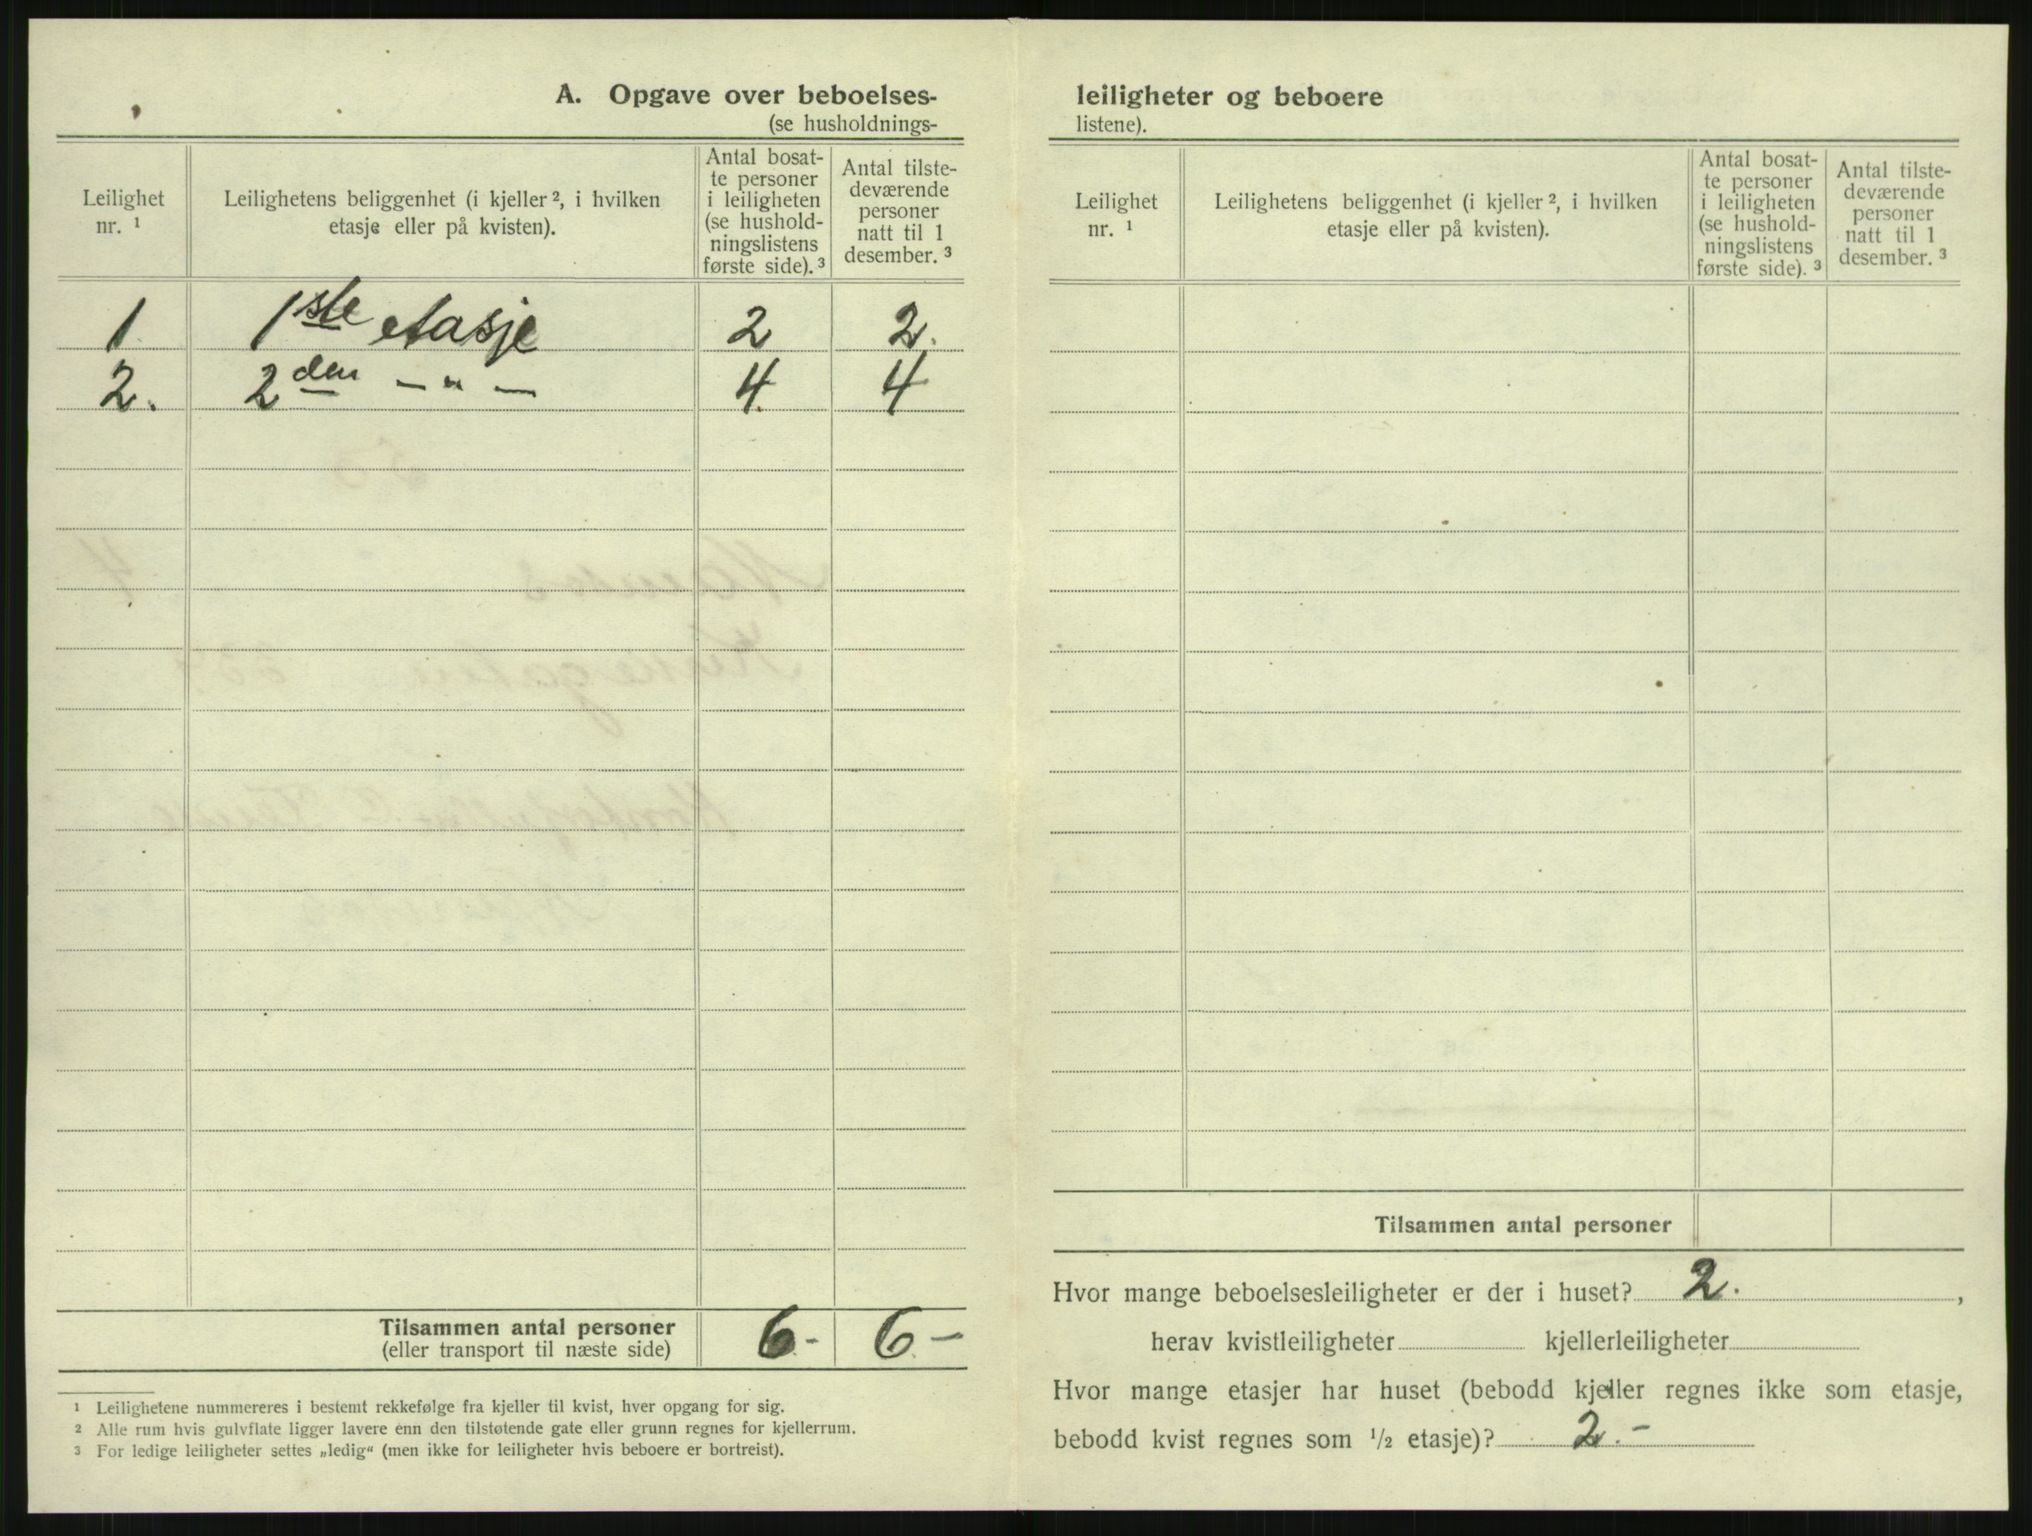 A. Opgave over beboelses-
(se husholdnings-
Leilighet
nr. ¹
Leilighetens beliggenhet (i kjeller ², i hvilken
etasje eller på kvisten).
Antal bosat-
te personer
i leiligheten
(se hushold-
ningslistens
første side). ³
Antal tilste-
deværende
personer
natt til 1
desember. ³
1 1ste etasje 2 2.
2. 2den — " — 4. 4
Tilsammen antal personer 6- 6-
(eller transport til næste side)
¹ Leilighetene nummereres i bestemt rekkefølge fra kjeller til kvist, hver opgang for sig.
² Alle rum hvis gulvflate ligger lavere enn den tilstøtende gate eller grunn regnes for kjellerrum.
³ For ledige leiligheter settes „ledig“ (men ikke for leiligheter hvis beboere er bortreist).
leiligheter og beboere
listene).
Leilighet
nr. ¹
Leilighetens beliggenhet (i kjeller ², i hvilken
etasje eller på kvisten).
Antal bosat-
te personer
i leiligheten
(se hushold-
ningslistens
første side). ³
Antal tilste-
deværende
personer
natt til 1
desember. ³
Tilsammen antal personer
Hvor mange beboelsesleiligheter er der i huset? 2. ,
herav kvistleiligheter kjellerleiligheter
Hvor mange etasjer har huset (bebodd kjeller regnes ikke som etasje,
bebodd kvist regnes som ½ etasje)? 2.-